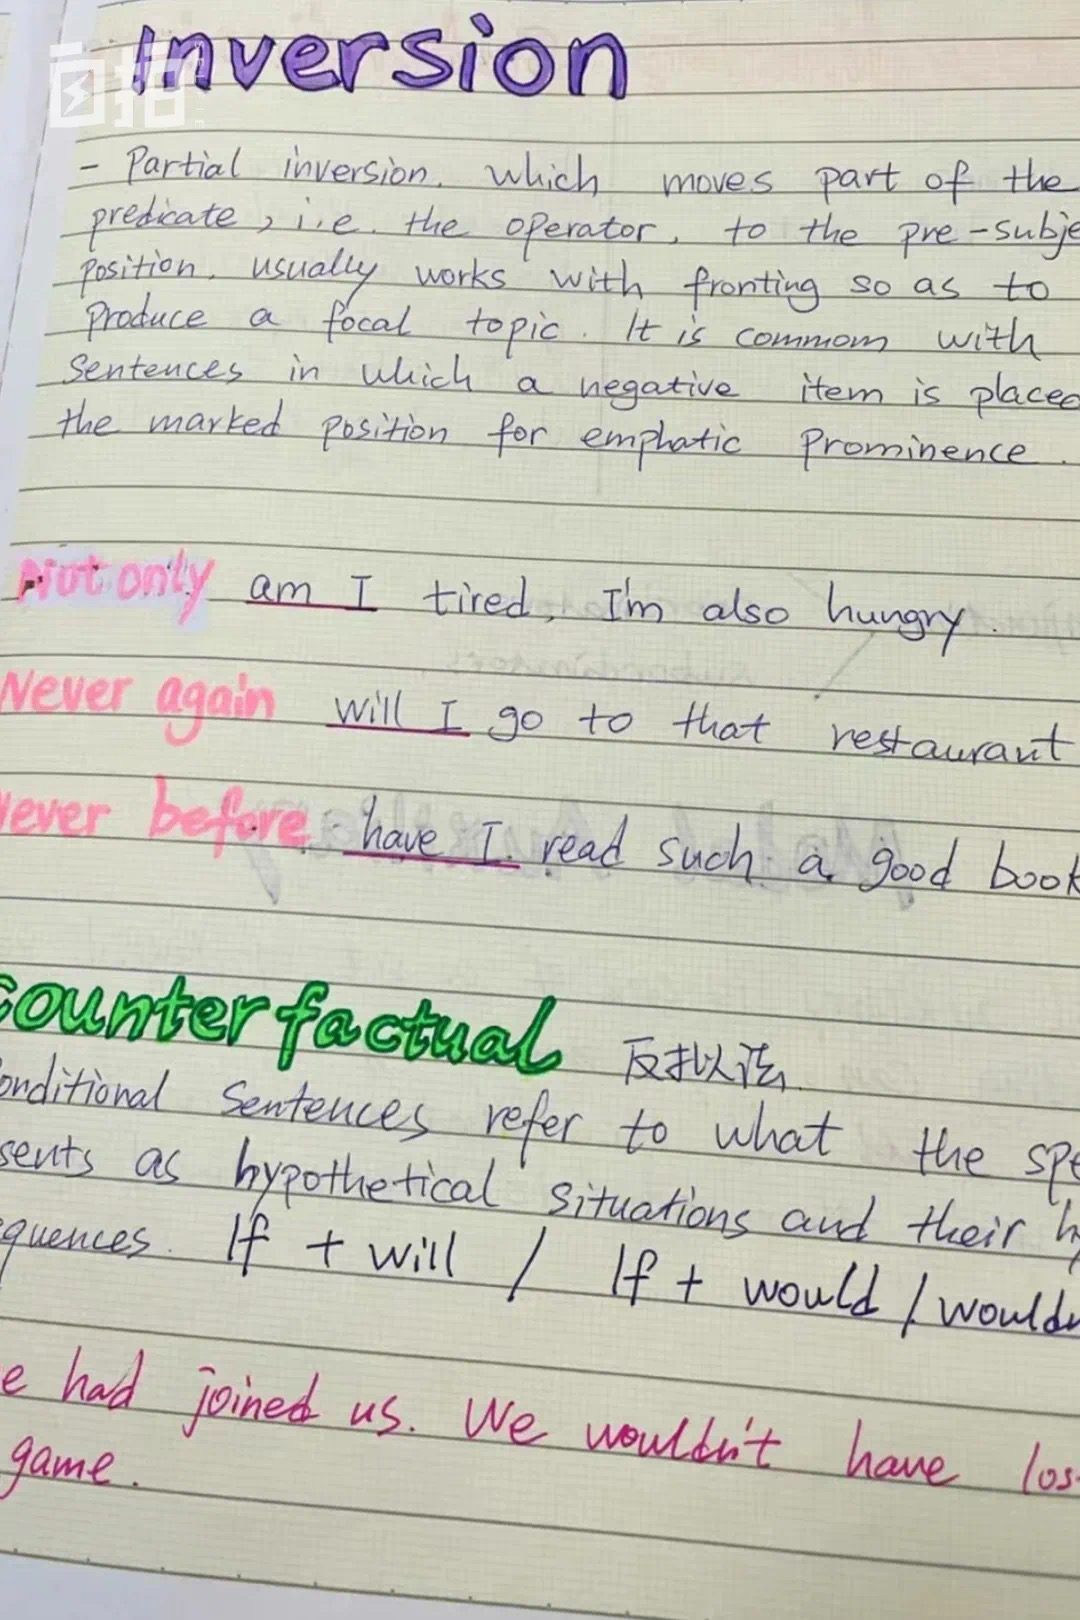 自拍
Inversion
- Partial inversion, which moves part of the
predicate, i.e. the operator, to the pre-subje
position, usually works with fronting so as to
produce a focal topic. It is commom with
sentences in which a negative item is placed
the marked position for emphatic prominence.
Not only am I tired, I'm also hungry.
Never again will I go to that restaurant
Never before have I read such a good book
Counterfactual 反拟以法
onditional sentences refer to what the spe
sents as hypothetical situations and their hy
quences. If + will / If + would / wouldn
e had joined us. We wouldn't have los
game.